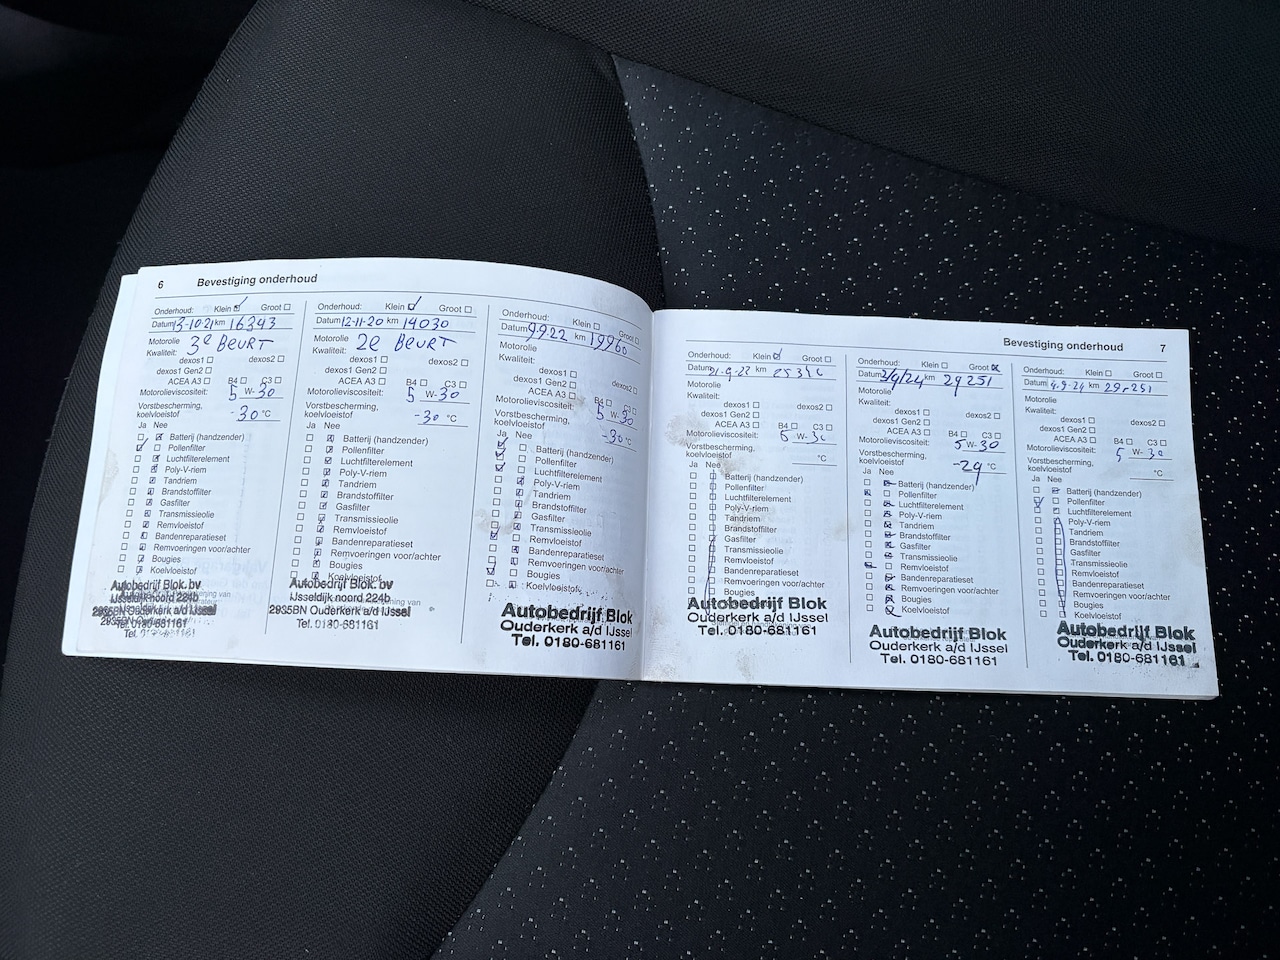 6 Bevestiging onderhoud
Onderhoud: Klein Groot
Datum 13-10-21 km 16343
Motorolie
Kwaliteit: 3e BEURT
dexos1 dexos2
dexos1 Gen2
ACEA A3 B4 C3
Motorolieviscositeit: 5 W-30
Vorstbescherming,
koelvloeistof -30 °C
Ja Nee
Batterij (handzender)
Pollenfilter
Luchtfilterelement
Poly-V-riem
Tandriem
Brandstoffilter
Gasfilter
Transmissieolie
Remvloeistof
Bandenreparatieset
Remvoeringen voor/achter
Bougies
Koelvloeistof
Autobedrijf Blok.bv
IJsseldijk noord 224b
2935BN Ouderkerk a/d IJssel
Tel. 0180-681161
Onderhoud: Klein Groot
Datum 12-11-20 km 14030
Motorolie
Kwaliteit: 2e BEURT
dexos1 dexos2
dexos1 Gen2
ACEA A3 B4 C3
Motorolieviscositeit: 5 W-30
Vorstbescherming,
koelvloeistof -30 °C
Ja Nee
Batterij (handzender)
Pollenfilter
Luchtfilterelement
Poly-V-riem
Tandriem
Brandstoffilter
Gasfilter
Transmissieolie
Remvloeistof
Bandenreparatieset
Remvoeringen voor/achter
Bougies
Koelvloeistof
Autobedrijf Blok.bv
IJsseldijk noord 224b
2935BN Ouderkerk a/d IJssel
Tel. 0180-681161
Onderhoud: Klein Groot
Datum 9-9-22 km 19960
Motorolie
Kwaliteit:
dexos1 dexos2
dexos1 Gen2
ACEA A3 B4 C3
Motorolieviscositeit: 5 W-30
Vorstbescherming,
koelvloeistof -30 °C
Ja Nee
Batterij (handzender)
Pollenfilter
Luchtfilterelement
Poly-V-riem
Tandriem
Brandstoffilter
Gasfilter
Transmissieolie
Remvloeistof
Bandenreparatieset
Remvoeringen voor/achter
Bougies
Koelvloeistof
Autobedrijf Blok
Ouderkerk a/d IJssel
Tel. 0180-681161
Bevestiging onderhoud 7
Onderhoud: Klein Groot
Datum km
Motorolie
Kwaliteit:
dexos1 dexos2
dexos1 Gen2
ACEA A3 B4 C3
Motorolieviscositeit: 5 W-30
Vorstbescherming,
koelvloeistof °C
Ja Nee
Batterij (handzender)
Pollenfilter
Luchtfilterelement
Poly-V-riem
Tandriem
Brandstoffilter
Gasfilter
Transmissieolie
Remvloeistof
Bandenreparatieset
Remvoeringen voor/achter
Bougies
Autobedrijf Blok
Ouderkerk a/d IJssel
Tel. 0180-681161
Onderhoud: Klein Groot
Datum km 29251
Motorolie
Kwaliteit:
dexos1 dexos2
dexos1 Gen2
ACEA A3 B4 C3
Motorolieviscositeit: 5 W-30
Vorstbescherming,
koelvloeistof -29 °C
Ja Nee
Batterij (handzender)
Pollenfilter
Luchtfilterelement
Poly-V-riem
Tandriem
Brandstoffilter
Gasfilter
Transmissieolie
Remvloeistof
Bandenreparatieset
Remvoeringen voor/achter
Bougies
Koelvloeistof
Autobedrijf Blok
Ouderkerk a/d IJssel
Tel. 0180-681161
Onderhoud: Klein Groot
Datum 4-9-24 km
Motorolie
Kwaliteit:
dexos1 dexos2
dexos1 Gen2
ACEA A3 B4 C3
Motorolieviscositeit: 5 W-30
Vorstbescherming,
koelvloeistof °C
Ja Nee
Batterij (handzender)
Pollenfilter
Luchtfilterelement
Poly-V-riem
Tandriem
Brandstoffilter
Gasfilter
Transmissieolie
Remvloeistof
Bandenreparatieset
Remvoeringen voor/achter
Bougies
Koelvloeistof
Autobedrijf Blok
Ouderkerk a/d IJssel
Tel. 0180-681161